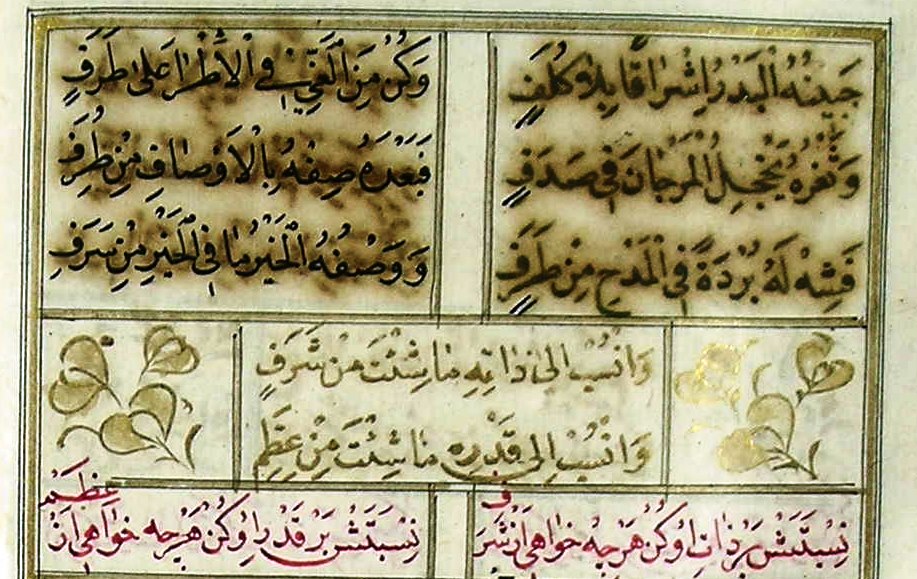 جَبِينُهُ الْبَدْرُ اِشْرَاقًا بِلَا كُلَفٍ وَكُنْ مِنَ الْغَيِّ فِي الْاَطْرَا عَلَى طَرَفٍ
وَثَغْرُهُ يُخْجِلُ الْمَرْجَانَ فِي صَدَفٍ فَبَعْدَهُ صِفْهُ بِالْاَوْصَافِ مِنْ طُرَفِ
فَشِهْ لَهُ بُرْدَةً فِي الْمَدْحِ مِنْ طَرَفٍ وَوَصْفُهُ الْخَيْرُ مَا فِي الْخَيْرِ مِنْ سَرَفِ
وَانْسُبْ اِلَى ذَاتِهِ مَا شِئْتَ مِنْ شَرَفٍ
وَانْسُبْ اِلَى قَدْرِهِ مَا شِئْتَ مِنْ عِظَمِ
نِسْبَتَشْ بَرْ ذَاتِ اُو كُنْ هَرْچِه خواهِى اَزْ شَرَف نِسْبَتَشْ بَرْ قَدْرِ اُو كُنْ هَرْچِه خواهِى اَزْ عِظَم